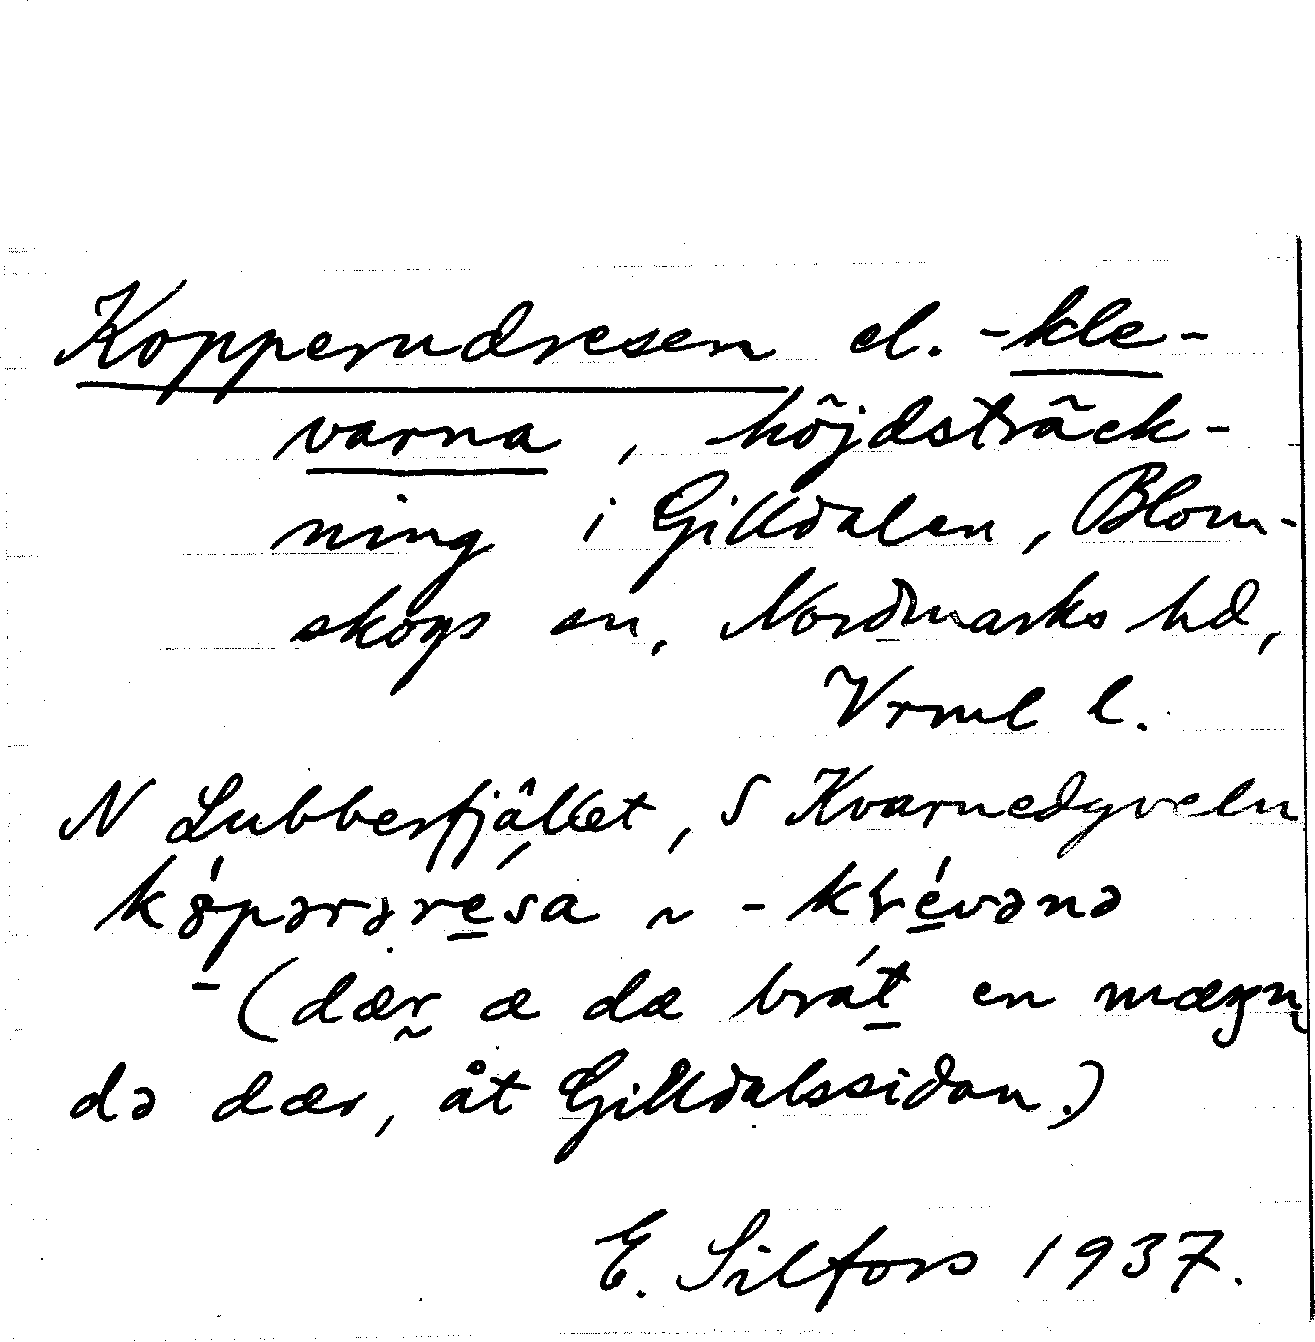 Kopperudresen el. -kle-
varna, höjdsträck-
ning i Gilldalen, Blom-
skogs sn, Nordmarks hd,
Vrml l.
N Lubberfjället, S Kvarnedyveln
(dær æ dæ brát en
də dær, åt Gilldalssidan.)
E. Silfors 1937.